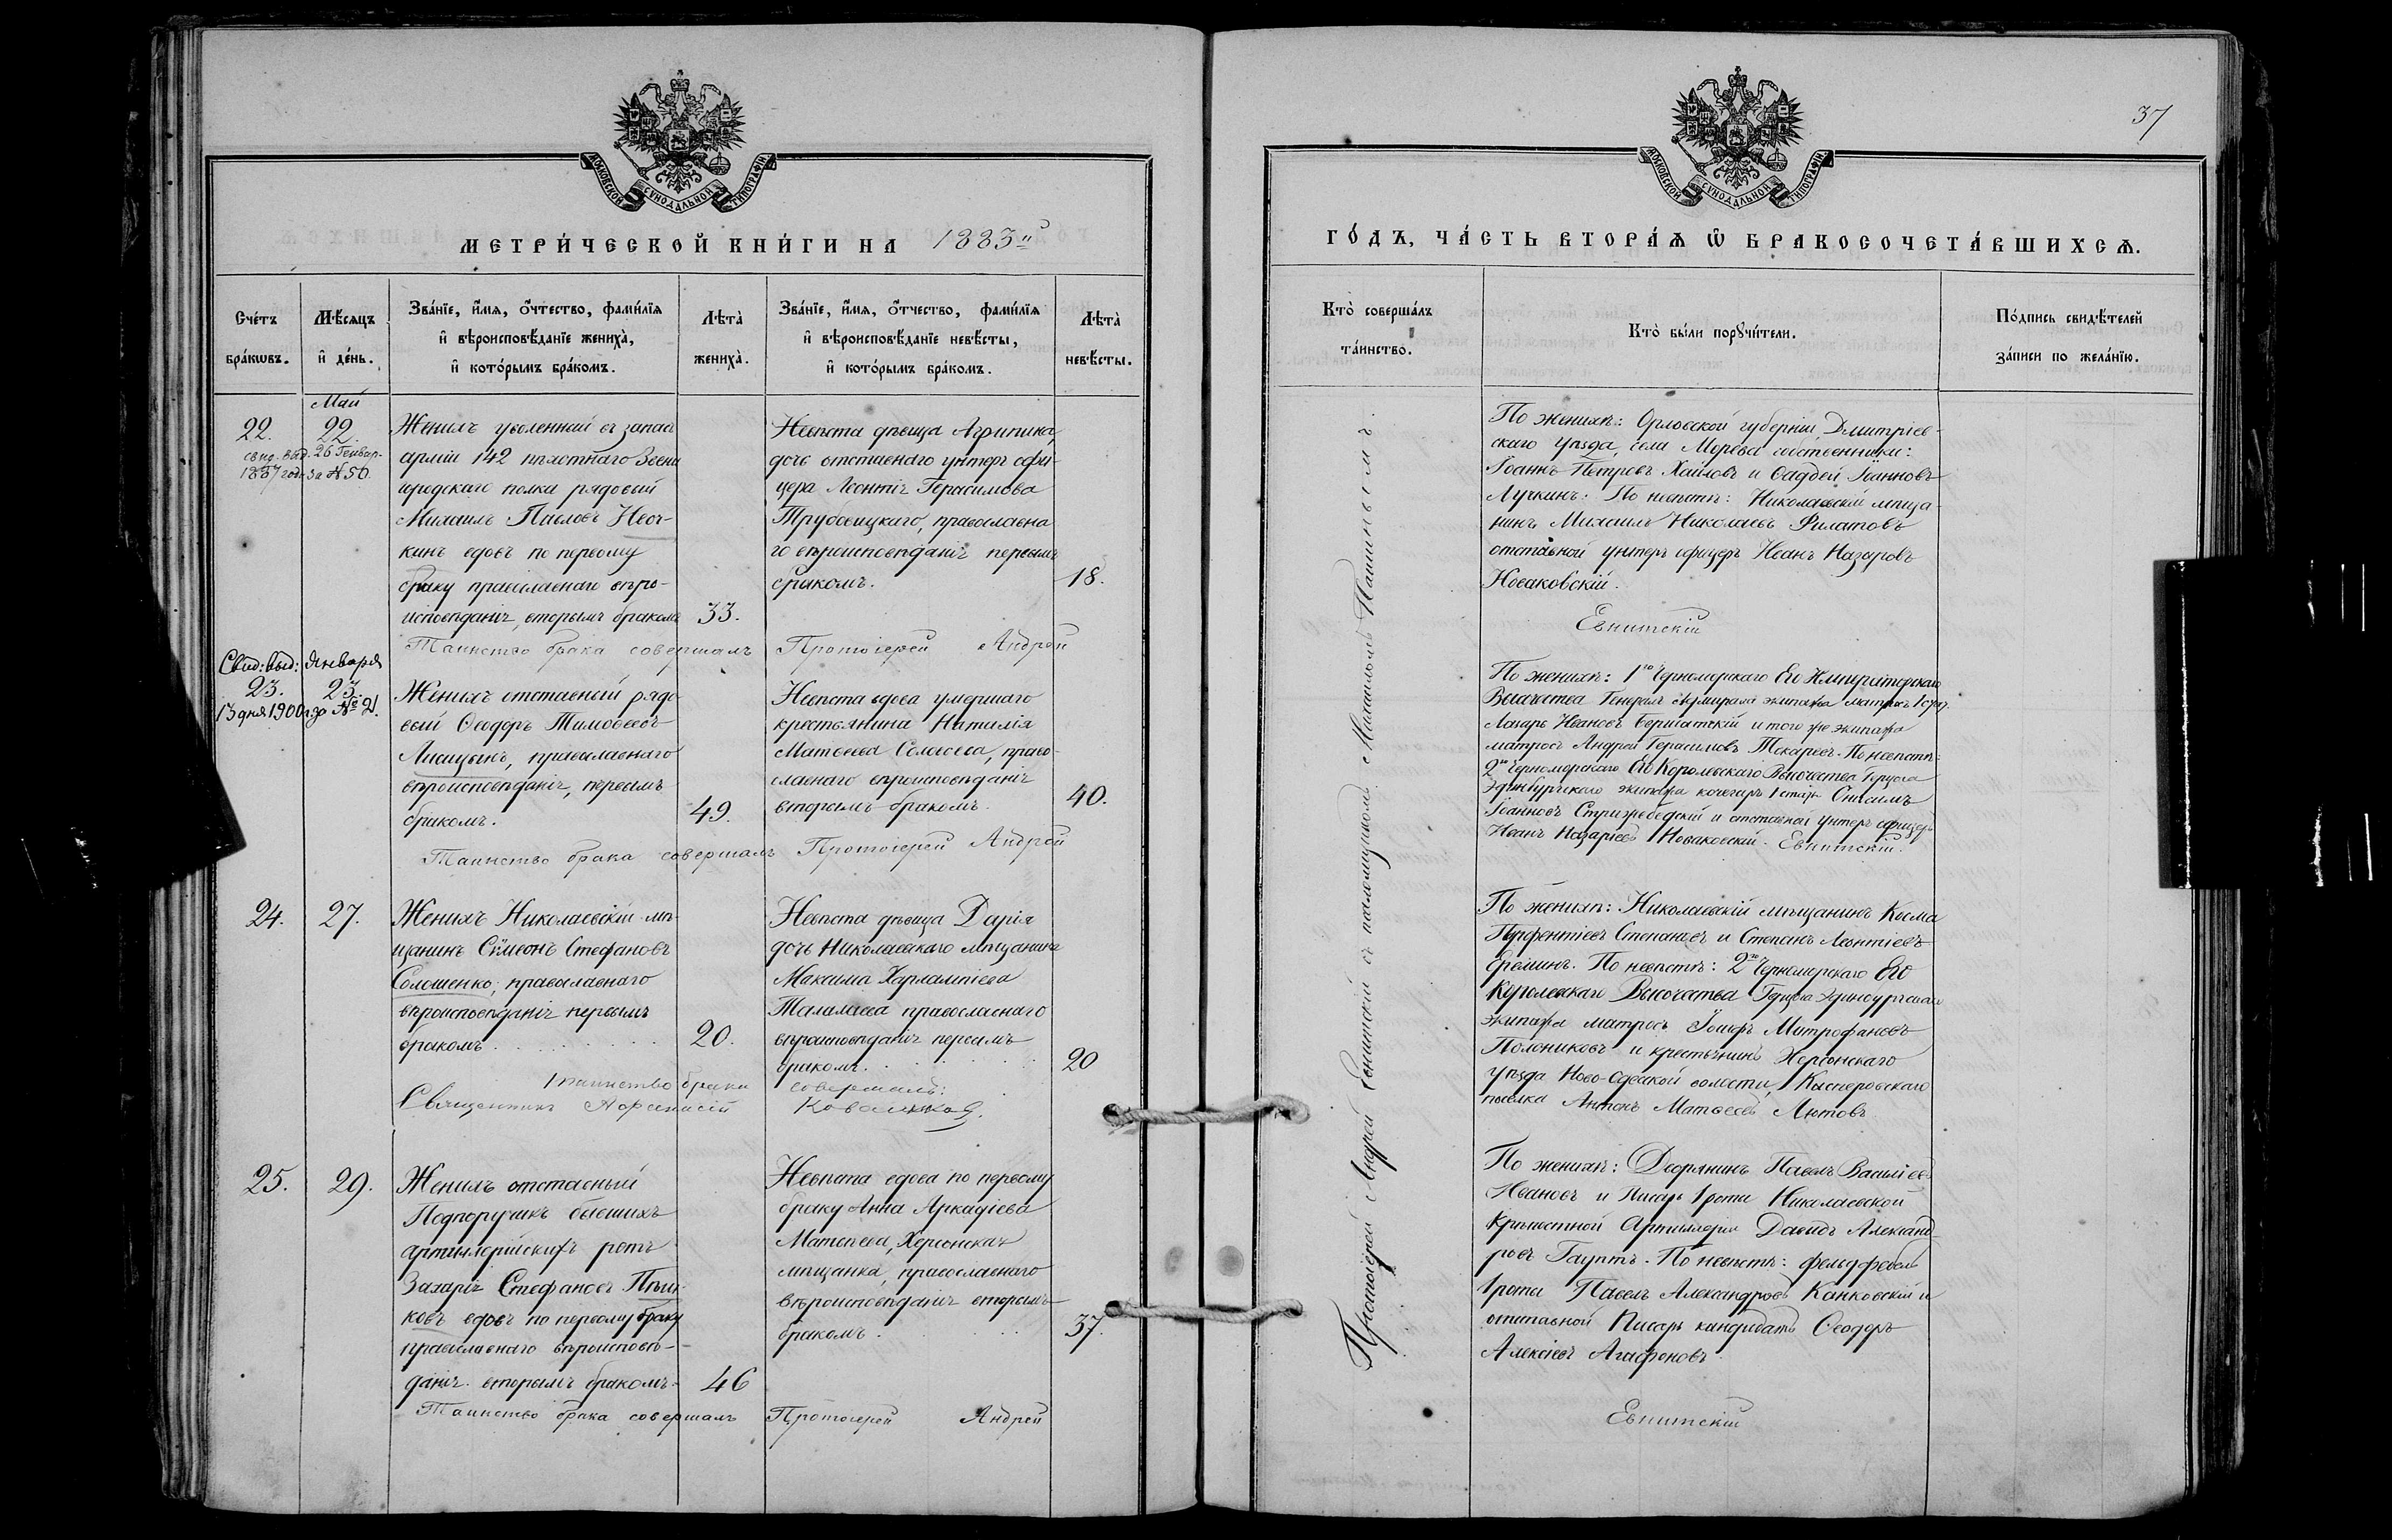 МОСКОВСКОЙ СУНОДАЛЬНОЙ ТИПОГРАФІИ
МЕТРИ́ЧЕСКОЙ КНИ́ГИ НА 1883й
Сче́тъ бра́кωвъ.
Мѣ́сяцъ и҆ де́нь.
Зва́нїе, и҆́мя, ѻ҆́тчество, фамѝлїя
и҆ вѣроисповѣ́данїе жениха̀,
и҆ кото́рымъ бра́комъ.
Лѣта̀ жениха̀.
Зва́нїе, и҆́мя, ѻ҆́тчество, фамѝлїя
и҆ вѣроисповѣ́данїе невѣ́сты,
и҆ кото́рымъ бра́комъ.
Лѣта̀ невѣ́сты.
Май
22.
22.
свид. выд. 26 Генвар.
1887 года за №50.
Женихъ уволенный въ запас
арміи 142 пѣхотнаго Звени
городскаго полка рядовый
Михаилъ Павловъ
кинъ вдовъ по первому
браку православнаго вѣро-
исповѣданія, вторымъ бракомъ
33.
Невѣста дѣвица Агрипина,
дочь отставнаго унтеръ офи-
цера Леонтія Герасимова
Трубовицкаго, православна
го вѣроисповѣданія первымъ
бракомъ.
18.
Таинство брака совершалъ Протоіерей Андрей
Свид: выд: Января
23.
23.
13 дня 1900 г. за № 21.
Женихъ отставный рядо
вый Ѳеодоръ Тимоѳеевъ
Лисицынъ, православнаго
вѣроисповѣданія, первымъ
бракомъ.
49.
Невѣста вдова умершаго
крестьянина Наталія
Матвеева, право-
славнаго вѣроисповѣданія
вторымъ бракомъ.
40.
Таинство брака совершалъ Протоіерей Андрей
24.
27.
Женихъ Николаевскій мѣ-
щанинъ Сѵмеонъ Стефановъ
Солошенко, православнаго
вѣроисповѣданія первымъ
бракомъ
20.
Невѣста дѣвица Дарія
дочь Николаевскаго мѣщанина
Максима Харлампіева
Талалаева православнаго
вѣроисповѣданія первымъ
бракомъ.
20
таинство брака совершалъ:
Священникъ Аѳанасій Коваленковъ.
25.
29.
Женихъ отставный
Подпоручикъ бывшихъ
артиллерійскихъ ротъ
Захарія Стефановъ
ковъ вдовъ по первому браку
православнаго вѣроисповѣ-
данія вторымъ бракомъ.
46
Невѣста вдова по первому
браку Анна Аркадіева
Матвѣева, Херсонская
мѣщанка, православнаго
вѣроисповѣданія вторымъ
бракомъ.
37.
Таинство брака совершалъ Протоіерей Андрей
37
МОСКОВСКОЙ СУНОДАЛЬНОЙ ТИПОГРАФІИ
ГО́ДЪ, ЧА́СТЬ ВТОРА́Я Ѽ БРАКОСОЧЕТА́ВШИХСЯ.
Кто̀ соверша́лъ та́инство.
Кто̀ бы́ли порꙋчи́тели.
По́дпись свидѣ́телей
за́писи по жела́нїю.
Протоіерей Андрей Евнитскій съ псаломщикомъ Михаиломъ
По женихѣ: Орловской губерніи, Дмитріев-
скаго уѣзда, села Морева собственники:
Іоаннъ Петровъ Хайловъ и Ѳаддей Іоанновъ
Лучкинъ. По невѣстѣ: Николаевскій мѣща-
нинъ Михаилъ Николаевъ Филатовъ
отставной унтеръ офицеръ Иванъ Назаровъ
Новаковскій.
Евнитскій
По женихѣ: 1го Черноморскаго Его Императорскаго
Высочества Генералъ Адмирала экипажа матросъ 1 стат.
Лазарь Ивановъ и того же экипажа
матросъ Андрей Герасимовъ Токаревъ. По невѣстѣ:
2го Черноморскаго Его Королевскаго Высочества Герцога
Эдинбургскаго экипажа кочегаръ 1 стат. Онисимъ
Іоанновъ Стрижебедскій и отставной унтеръ офицеръ
Иванъ Назаріевъ Новаковскій. Евнитскій.
По женихѣ: Николаевскій мѣщанинъ Косма
Парфентіевъ Степановъ и Степанъ Леонтіевъ
Ереминъ. По невѣстѣ: 2го Черноморскаго Его
Королевскаго Высочества Герцога Эдинбургскаго
экипажа матросъ Іосифъ Митрофановъ
Полониковъ и крестьянинъ Херсонскаго
уѣзда Ново-Одесской волости,
поселка Антонъ Матвеевъ Лютовъ
По женихѣ: Дворянинъ Павелъ Василіевъ
Ивановъ и Писарь 1 роты Николаевской
Крѣпостной Артиллеріи Давидъ Александ-
ровъ Гауптъ. По невѣстѣ: фельдфебель
1 роты Павелъ Александровъ Канковскій и
отставной Писарь кандидатъ Ѳеодоръ
Алексіевъ Агафоновъ
Евнитскій